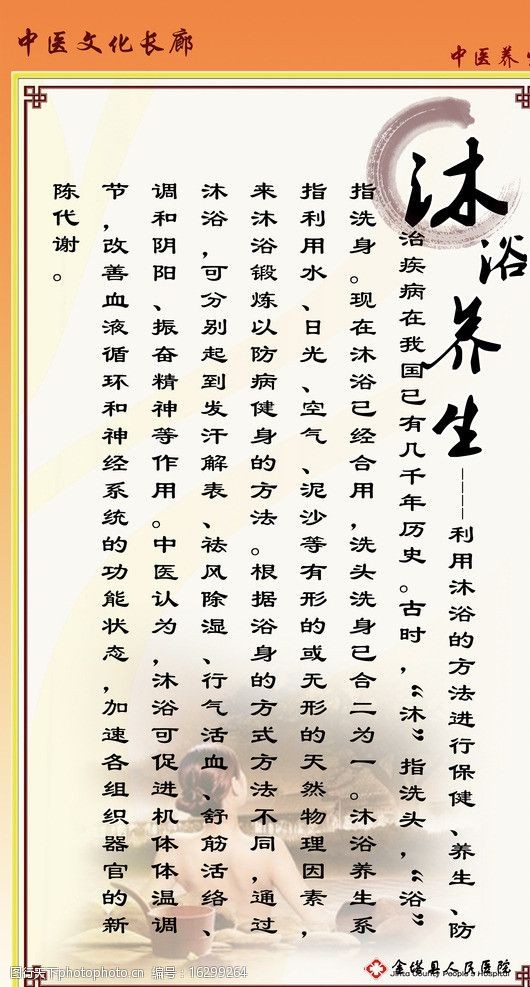 中医文化长廊
中医养生
沐浴养生
——利用沐浴的方法进行保健、养生、防
治疾病在我国已有几千年历史。古时，“沐”指洗头，“浴”
指洗身。现在沐浴已经合用，洗头洗身已合二为一。沐浴养生系
指利用水、日光、空气、泥沙等有形的或无形的天然物理因素，
来沐浴锻炼以防病健身的方法。根据浴身的方式方法不同，通过
沐浴，可分别起到发汗解表、祛风除湿、行气活血、舒筋活络、
调和阴阳、振奋精神等作用。中医认为，沐浴可促进机体体温调
节，改善血液循环和神经系统的功能状态，加速各组织器官的新
陈代谢。
金塔县人民医院
Jinta County People's Hospital
图行天下 photophoto.cn 编号：16299264